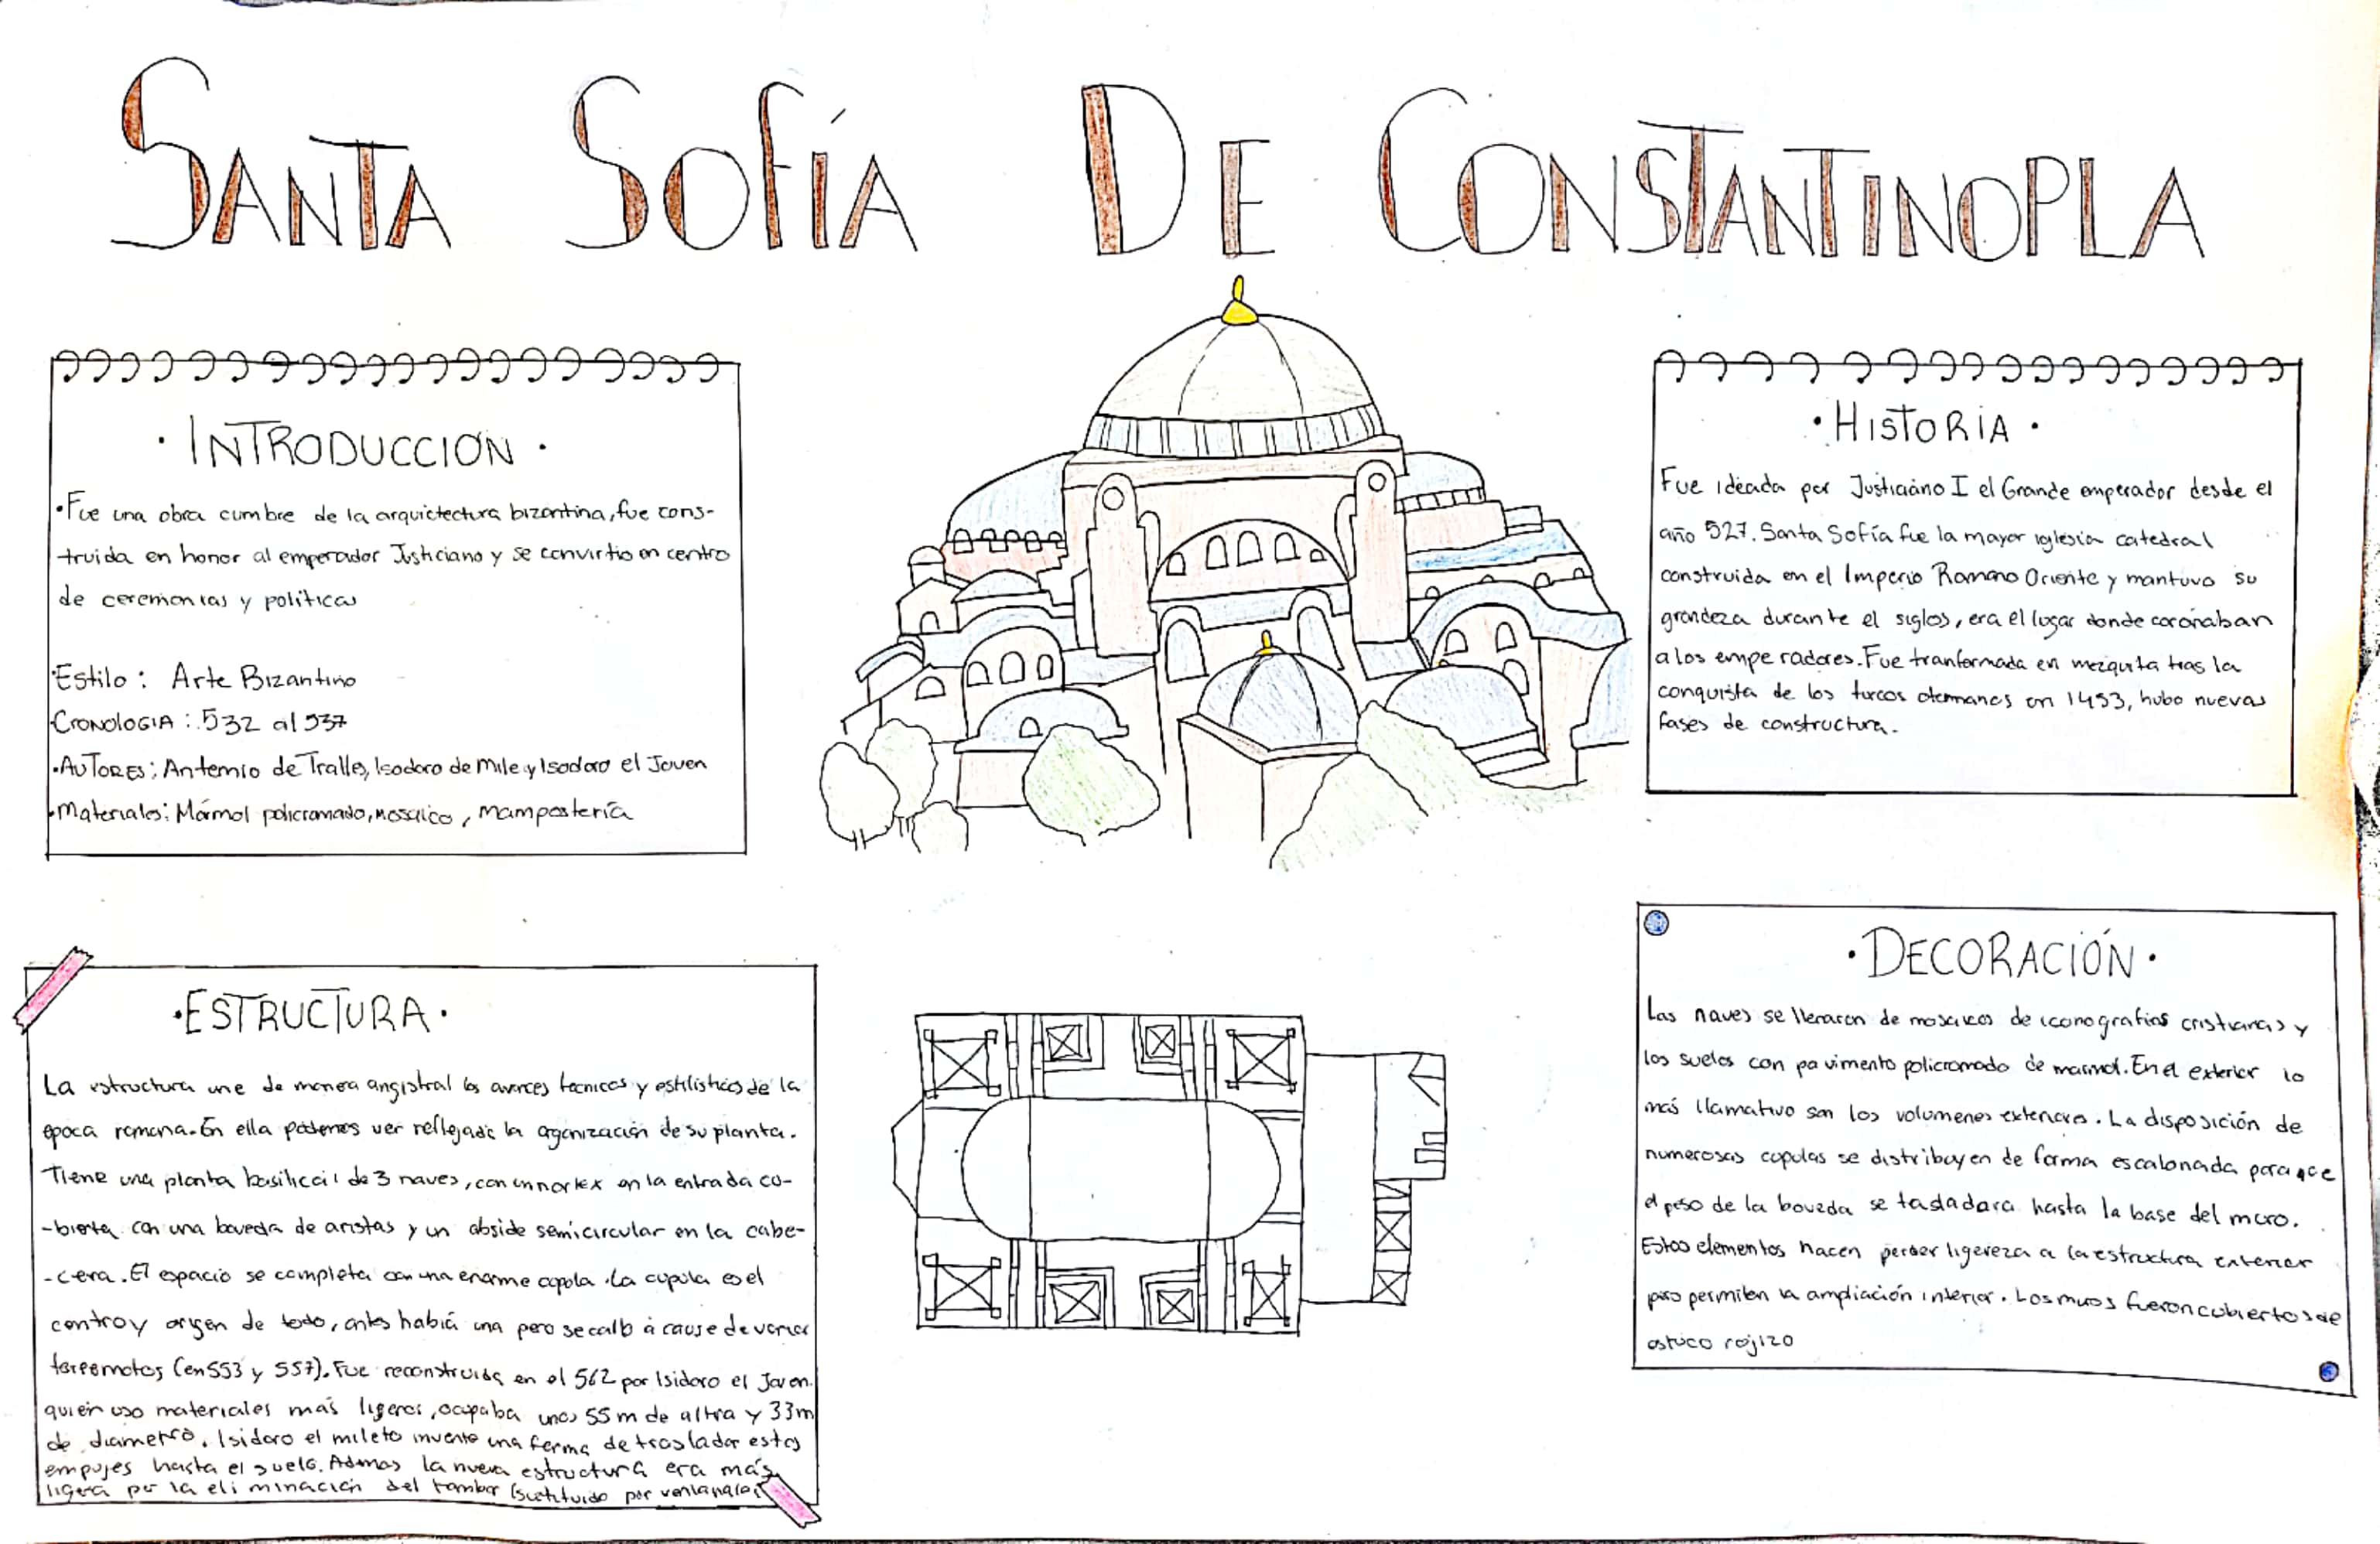 SANTA SOFÍA DE CONSTANTINOPLA
· INTRODUCCION ·
·Fue una obra cumbre de la arquictectura bizantina, fue cons-
truida en honor al emperador Justiciano y se convirtio en centro
de ceremonias y politicas
·Estilo: Arte Bizantino
·CRONOLOGIA: 532 al 537
·AUTORES: Antemio de Tralles, Isodoro de Mile y Isodoro el Joven
·Materiales: Mármol policromado, mosaico, mampostería
· HISTORIA ·
Fue ideada por Justiciano I el Grande emperador desde el
año 527. Santa Sofía fue la mayor iglesia catedral
construida en el Imperio Romano Oriente y mantuvo su
grandeza durante el siglos, era el lugar donde coronaban
a los emperadores. Fue tranformada en mezquita tras la
conquista de los turcos otomanos en 1453, hubo nuevas
fases de constructura.
·ESTRUCTURA·
La estructura une de manera angistral los avances tecnicos y estilisticos de la
epoca romana. En ella podemos ver reflejada la oganización de su planta.
Tiene una planta basilical de 3 naves, con un nartex en la entrada cu-
-bierta con una boveda de aristas y un abside semicircular en la cabe-
-cera. El espacio se completa con una enorme cupola. La cupula es el
centro y origen de todo, antes había una pero se calló a cause de varios
terremotos (en 553 y 557). Fue reconstruida en el 562 por Isidoro el Joven
quien uso materiales más ligeros, ocupaba unos 55m de altra y 33m
de diametro. Isidoro el mileto invento una forma de trasladar estos
empujes hasta el suelo. Ademas la nueva estructura era más
ligera por la eliminación del tambor (sustituido por
· DECORACIÓN ·
Las naves se llenaron de mosaicos de iconografias cristianas y
los suelos con pavimento policromado de marmol. En el exterior lo
más llamativo son los volumenes exteriores. La disposición de
numerosas cupolas se distribuyen de forma escalonada para que
el peso de la boveda se tasladara hasta la base del muro.
Estos elementos hacen perder ligereza a la estructura exterior
pero permiten la ampliación interior. Los muros fueron cubiertos de
estuco rojizo